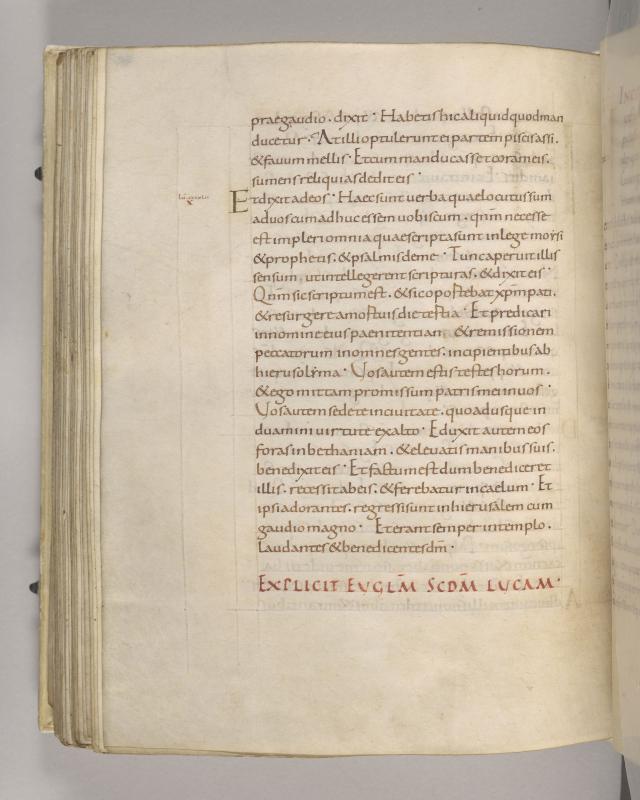 praegaudio. dixit· Habetis hic aliquid quodman
ducetur· At illi optulerunt ei partem piscis assi.
& fauum mellis· Et cum manducasset coram eis.
sumens reliquias dedit eis·
Et dixit ad eos· Haec sunt uerba quae locutus sum
ad uos cum adhuc essem uobiscum. qnm necesse
est impleri omnia quae scripta sunt in lege moysi
& prophetis. & psalmis de me· Tunc aperuit illis
sensum ut intellegerent scripturas. & dixit eis·
Qnm sic scriptum est. & sic oportebat xpm pati.
& resurgere a mortuis die tertia· Et predicari
in nomine eius paenitentiam & remissionem
peccatorum in omnes gentes. incipientibus ab
hierusolyma· Uos autem estis testes horum.
& ego mittam promissum patris mei in uos·
Uos autem sedete in ciuitate. quoadusque in
duamini uirtute ex alto· Eduxit autem eos
foras in bethaniam. & eleuatis manibus suis.
benedixit eis· Et factum est dum benediceret
illis. recessit ab eis. & ferebatur in caelum· Et
ipsi adorantes. regressi sunt in hierusalem cum
gaudio magno· Et erant semper in templo.
laudantes & benedicentes dm̄·
EXPLICIT EVGLM̄ SCDM̄ LUCAM·